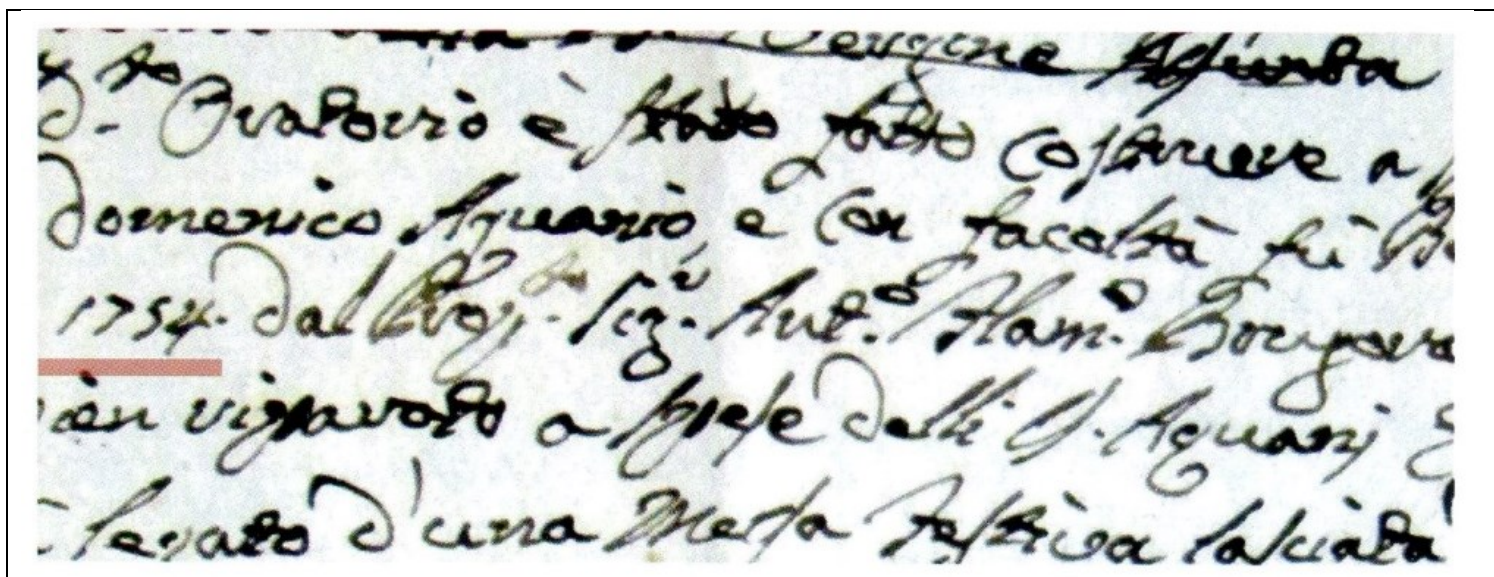 Vergine Assunta
d.to Oratorio è stato fatto costruere a
Domenico Aquario, e con facoltà fù
1754. dal Sig.r Ant.o Flam.o
vien riparato a spese delli SS. Aquarj
legato d'una Messa Festiva lasciata